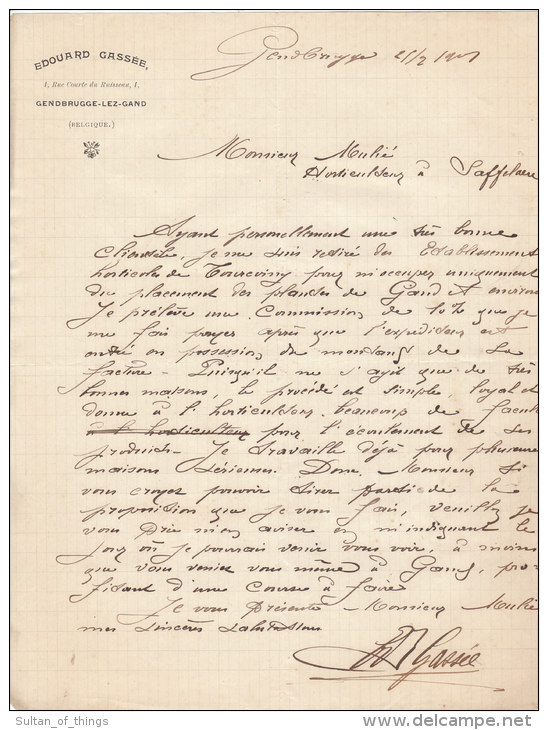 EDOUARD GASSÉE,
1, Rue Courte du Ruisseau, 1,
GENDBRUGGE-LEZ-GAND
(BELGIQUE.)
Gendbrugge 25/2 190
Monsieur Mulié
Horticulteur à Saffelaere
Ayant personellement une très bonne
clientèle je me suis retiré des Etablissements
horticoles de pour m'occuper uniquement
du placement des plantes de Gand et environs
Je prélève une Commission de 10% que je
me fais payer après que l'expéditeur est
entré en possession du montant de sa
facture - Puisqu'il ne s'agit que de très
bonnes maisons, le procédé est simple, loyal et
donne à l'horticulteur beaucoup de facilité
à l'horticulteur pour l'écoulement de ses
produits - Je travaille déjà pour plusieurs
maisons sérieuses. Donc, Monsieur si
vous croyez pouvoir tirer partie de la
proposition que je vous fais, veuillez je
vous prie m'en aviser en m'indiquant le
jour où je pourrais venir vous voir, à moins
que vous veniez vous même à Gand, pro-
fitant d'une course à faire
Je vous présente Monsieur Mulié
mes sincères salutations
Gassée
Sultan_of_things
delcampe.net